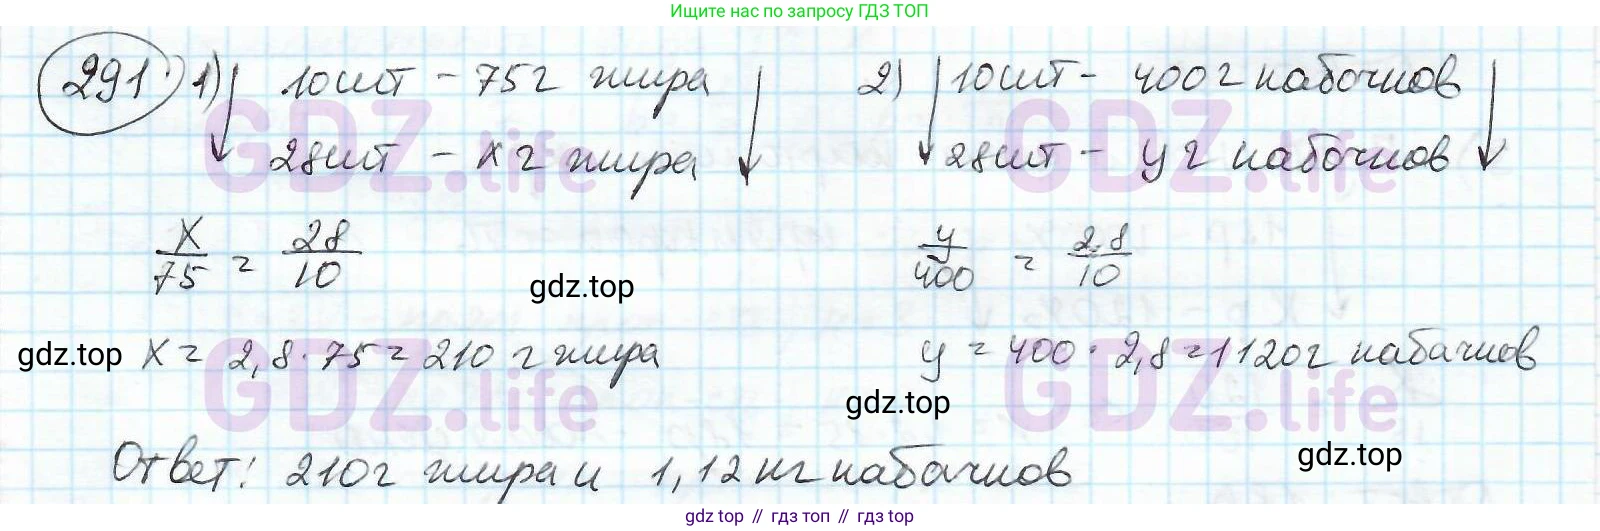 Ищите нас по запросу ГДЗ ТОП
291. 1) 10шт - 75г жира
28шт - x г жира
x/75 = 28/10
x = 2,8 · 75 = 210 г жира
2) 10шт - 400г кабачков
28шт - y г кабачков
y/400 = 28/10
y = 400 · 2,8 = 1120г кабачков
Ответ: 210г жира и 1,12кг кабачков
GDZ.life
GDZ.life
GDZ.life
GDZ.life
gdz.top
gdz.top
gdz.top
gdz.top
gdz top // гдз топ // gdz top